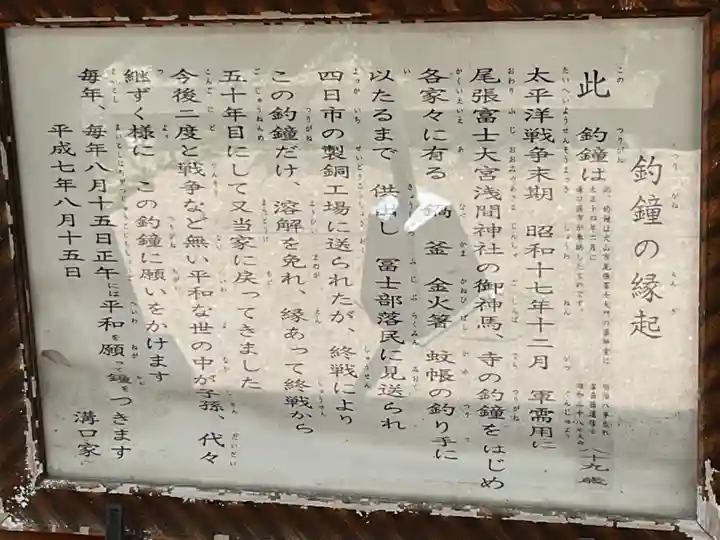 釣鐘の縁起
此 釣鐘は
太平洋戦争末期 昭和十七年十二月 軍需用に
尾張冨士大宮浅間神社の御神馬、寺の釣鐘をはじめ
各家々に有る 鍋 釜 金火箸 蚊帳の釣り手に
以たるまで 供出し 冨士部落民に見送られ
四日市の製銅工場に送られたが、終戦により
この釣鐘だけ、溶解を免れ、縁あって終戦から
五十年目にして又当家に戻ってきました
今後二度と戦争など無い平和な世の中が子孫、代々
継ずく様に この釣鐘に願いをかけます
毎年、毎年八月十五日正午には平和を願って鐘をつきます
平成七年八月十五日 溝口家
八十九歳